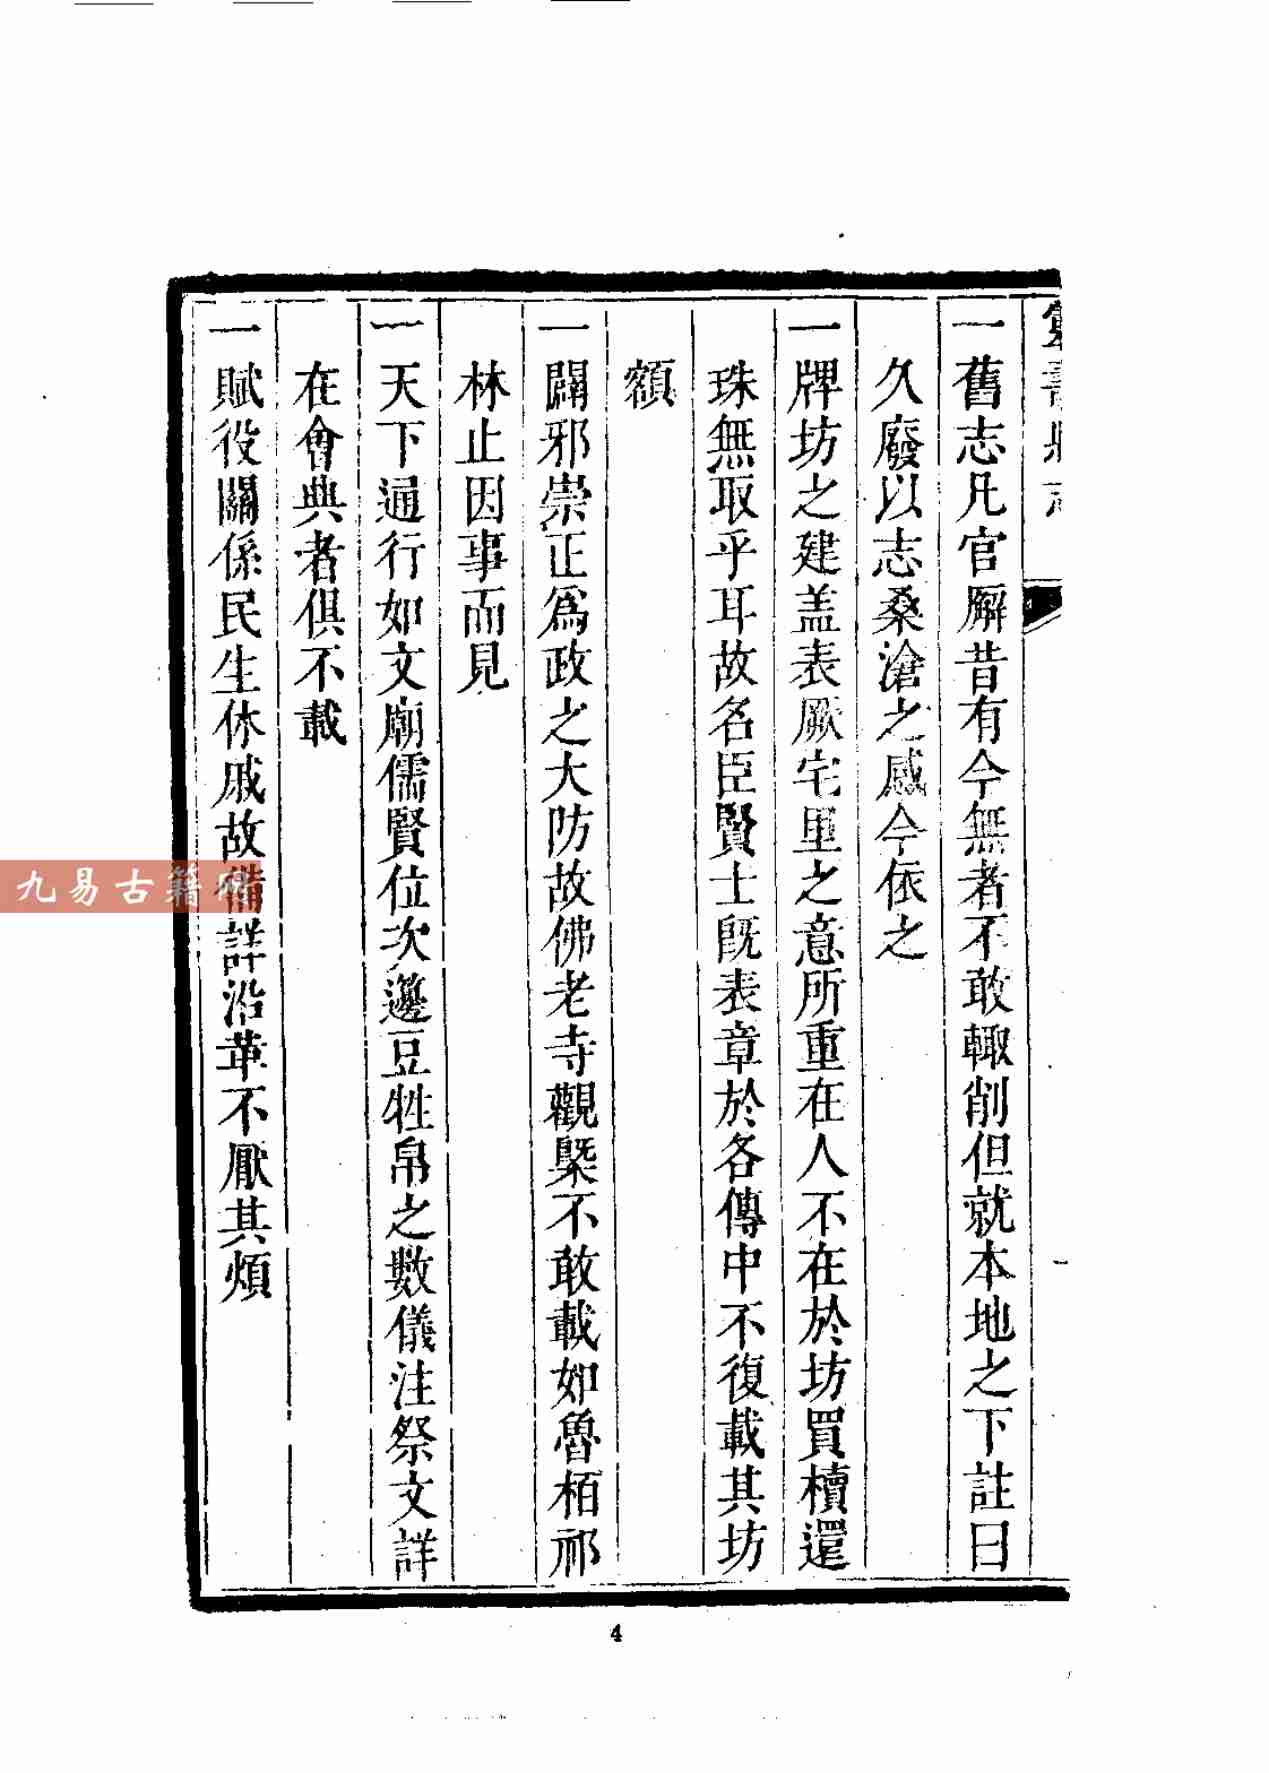 靈壽縣志
一舊志凡官廨昔有今無者不敢輙削但就本地之下註曰
久廢以志桑滄之感今依之
一牌坊之建盖表厥宅里之意所重在人不在於坊買櫝還
珠無取乎耳故名臣賢士旣表章於各傳中不復載其坊
額
一闢邪崇正爲政之大防故佛老寺觀槩不敢載如魯栢祁
林止因事而見
一天下通行如文廟儒賢位次籩豆牲帛之數儀注祭文詳
在會典者俱不載
一賦役關係民生休戚故備詳沿革不厭其煩
4
九易古籍